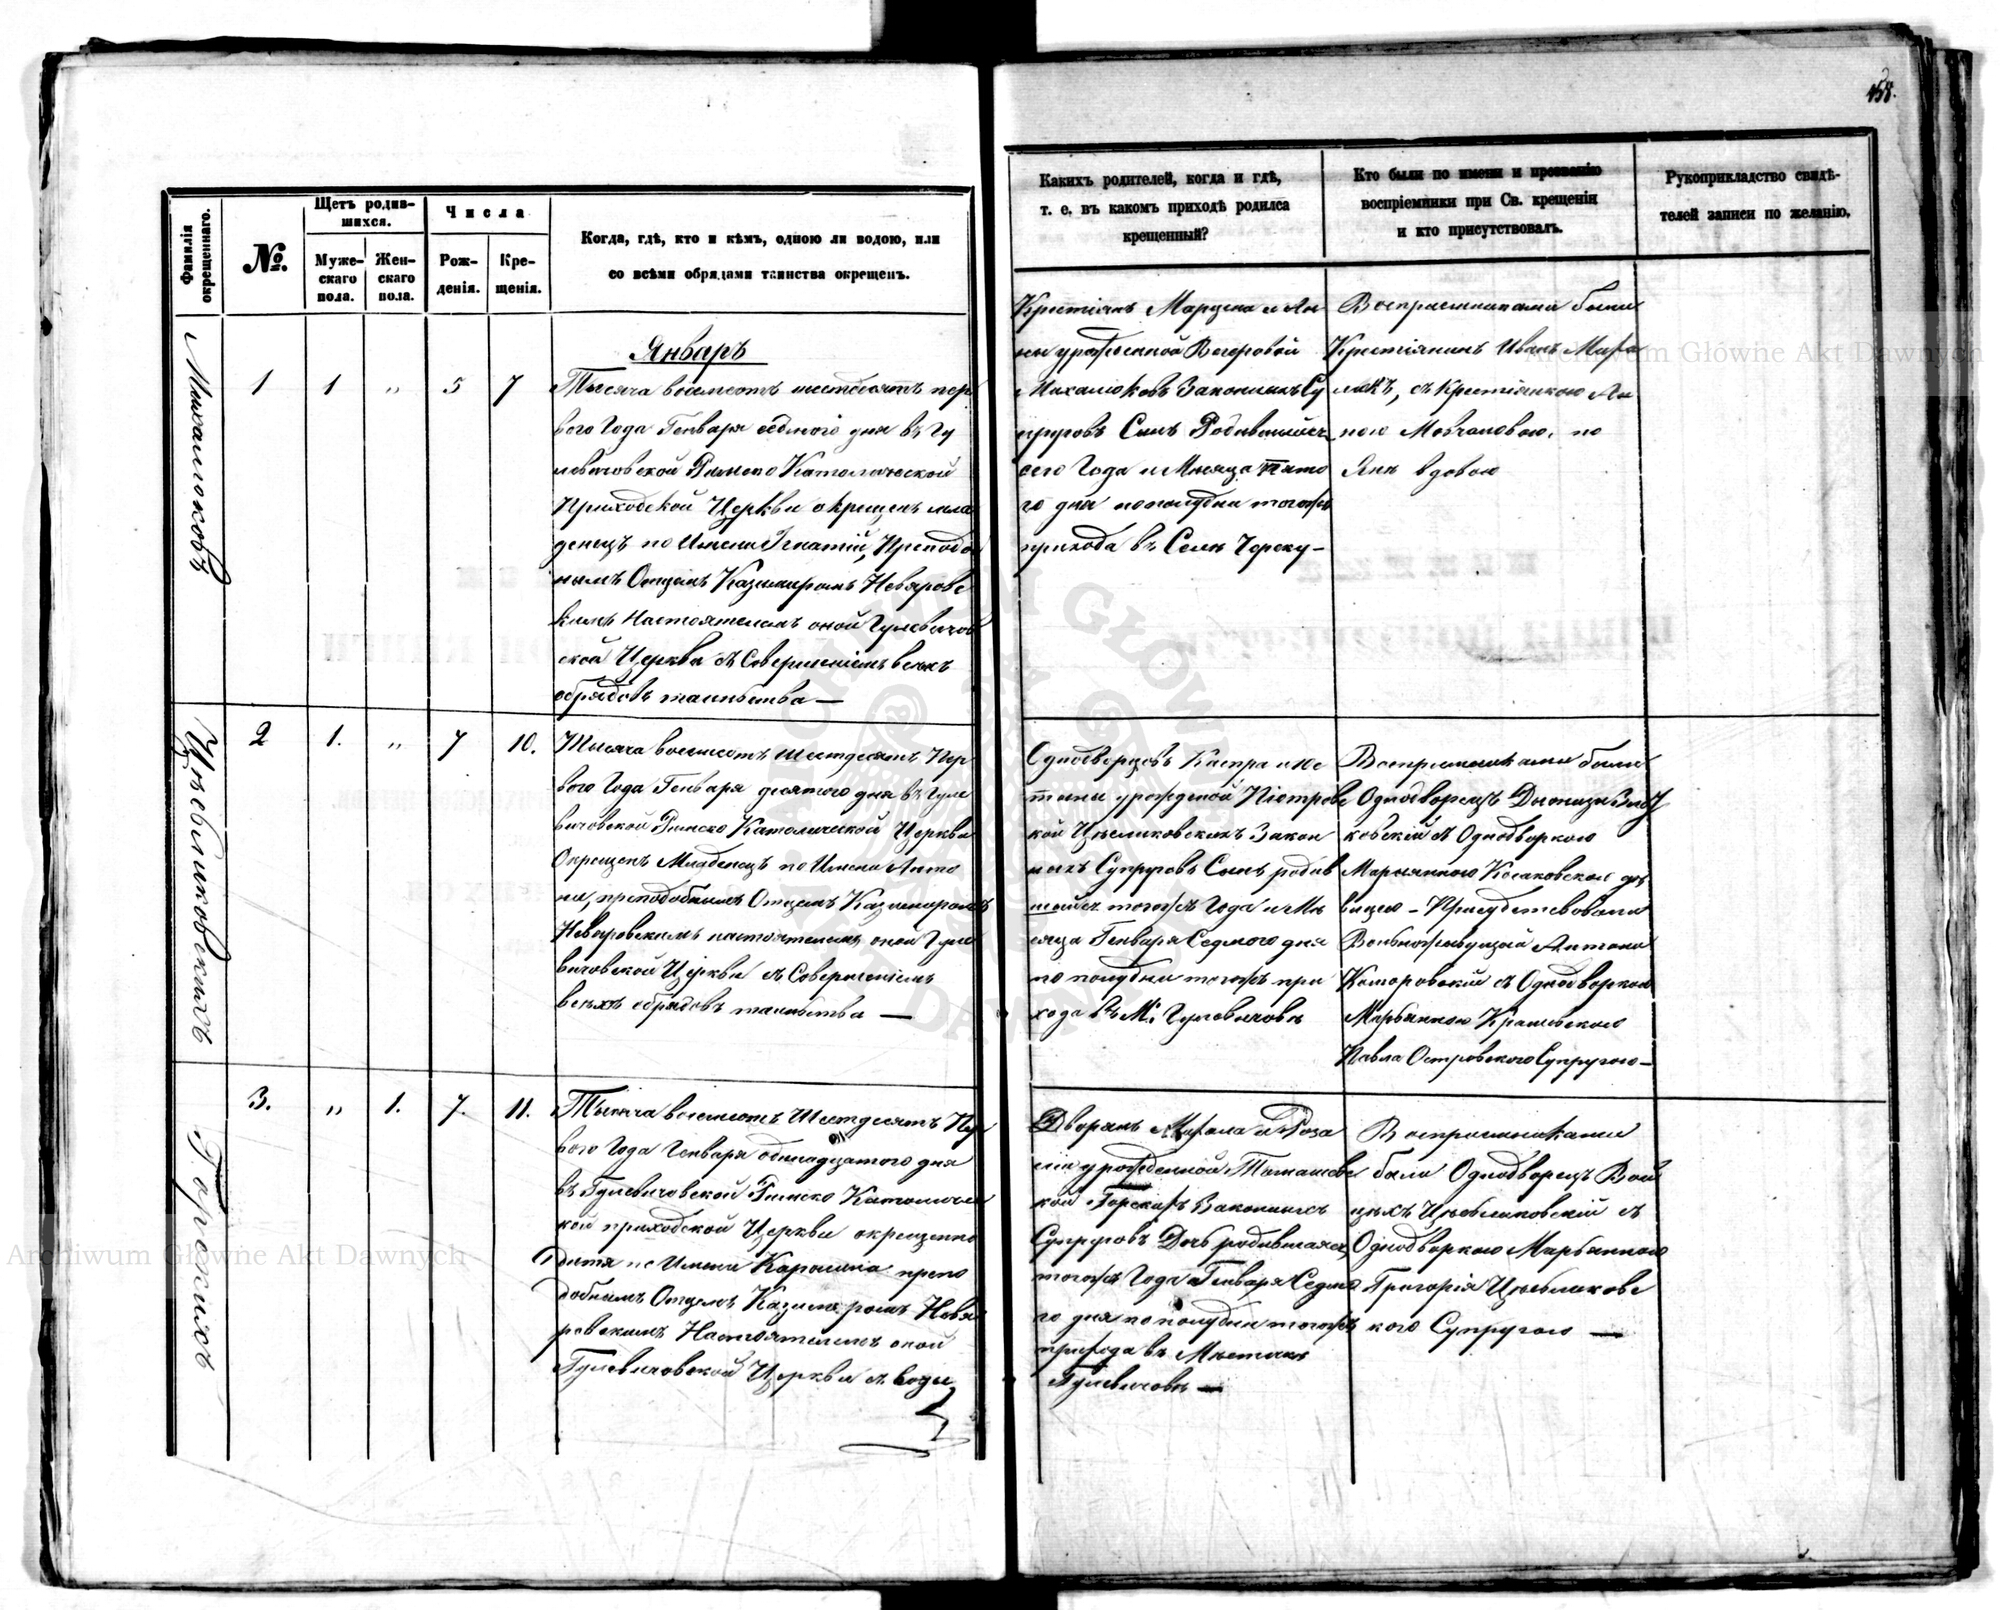 158.
Фамилія
окрещеннаго.
№.
Щетъ родив-
шихся.
Муже-
скаго
пола.
Жен-
скаго
пола.
Числа
Рож-
денія.
Кре-
щенія.
Когда, гдѣ, кто и кѣмъ, одною ли водою, или
со всѣми обрядами таинства окрещенъ.
Январь
Михалюковъ
1 1 „ 5 7
Тысяча восемсотъ шестдесятъ пер
вого Года Генваря седмого дня въ Гу
левичовской Римско Католической
Приходской Церкви окрещенъ мла
денецъ по Имени Игнатій, Преподоб
нымъ Отцемъ Казимиромъ Невяровс
кимъ Настоятелемъ оной Гулевичов
ской Церкви съ Совершеніемъ всехъ
обрядовъ таинства —
Цѣсликовскихъ
2 1. „ 7 10.
Тысяча восемсотъ шестдесятъ Пер
вого Года Генваря десятого дня въ Гуле
вичовской Римско Католической Церкви
Окрещенъ Младенецъ по Имени Анто
ни, преподобнымъ Отцемъ Казимиромъ
Невяровскимъ настоятелемъ оной Гуле
вичовской Церкви съ Совершеніемъ
всехъ обрядовъ таинства —
Горскихъ
3. „ 1. 7. 11.
Тысяча восемсотъ Шестдесятъ Пер
вого Года Генваря одинадцатого дня
въ Гулевичовской Римско Католичес
кой приходской Церкви окрещенно
Дитя по Имени Каролина препо
добнымъ Отцемъ Казимиромъ Невя
ровскимъ Настоятелемъ оной
Гулевичовской Церкви съ воды
Какихъ родителей, когда и гдѣ,
т. е. въ какомъ приходѣ родился
крещенный?
Кто были по имени и прозванію
воспріемники при Св. крещеніи
и кто присутствовалъ.
Рукоприкладство свидѣ-
телей записи по желанію.
Крестіянъ Марцина и Ан
ны урожденной
Михалюковъ Законныхъ Су
пруговъ Сынъ Родившійся
сего Года и Мѣсяца Пято
го дня пополудни тогожъ
прихода въ Селѣ
Воспріемниками были
Крестіянинъ Иванъ
съ Крестіянкою Ан
ною
вдовою
Однодворцовъ Каспра и Ю
стыны урожденой Піотровс
кой Цѣсликовскихъ Закон
ныхъ Супруговъ Сынъ родив
шийся тогожъ Года и Мѣ
сяца Генваря Седмого дня
по полудни тогожъ при
хода въ М. Гулевичовѣ
Воспріемниками были
Однодворецъ Дыонизи
ковскій съ Однодворкою
Марьянною Косаковскою дѣ
вицею — Присудствовали
Вольножидущий Антони
Коморовский съ Однодворкою
Марьянною
Павла Островского Супругою —
Дворянъ Михала и Роза
ліи урожденной Томашевс
кой Горскихъ Законныхъ
Супруговъ Дочь родившаяся
тогожъ Года Генваря Седмо
го дня по полудни тогожъ
прихода въ Мѣстечкѣ
Гулевичовѣ —
Воспріемниками
были Однодворецъ Вой
цѣхъ Цѣсликовскій съ
Однодворкою Марьянною
Григорія Цѣсликовс
кого Супругою —
Archiwum Główne Akt Dawnych
Archiwum Główne Akt Dawnych